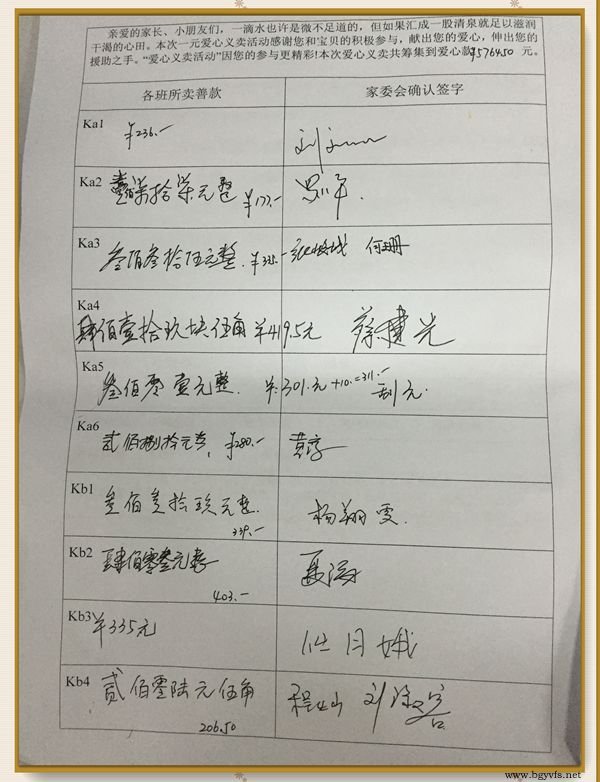 亲爱的家长、小朋友们，一滴水也许是微不足道的，但如果汇成一股清泉就足以滋润
干渴的心田。本次一元爱心义卖活动感谢您和宝贝的积极参与，献出您的爱心，伸出您的
援助之手。“爱心义卖活动”因您的参与更精彩!本次爱心义卖共筹集到爱心款¥5764.50元。
各班所卖善款 家委会确认签字
Ka1 ¥236.-
Ka2 壹佰柒拾柒元整 ¥177.-
Ka3 叁佰叁拾伍元整. ¥335.- 何珊
Ka4
肆佰壹拾玖块伍角 ¥419.5元 蔡建光
Ka5
叁佰零壹元整. ¥:301.元 +10.=311.-
Ka6
贰佰捌拾元整, ¥280.-
Kb1
叁佰叁拾玖元整. 杨翔雯.
339.-
Kb2 肆佰零叁元整
403.-
Kb3 ¥335元 月娥
Kb4 贰佰零陆元伍角 刘
206.50
www.bgyvfs.net